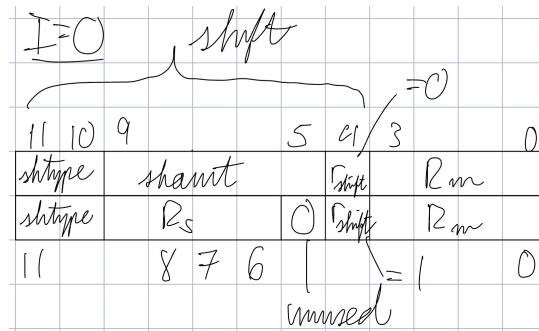 I=0 shift
=0
11 10 9 5 4 3 0
shtype shamt rshift Rm
shtype Rs 0 rshift Rm
11 8 7 6 1 =1 0
unused